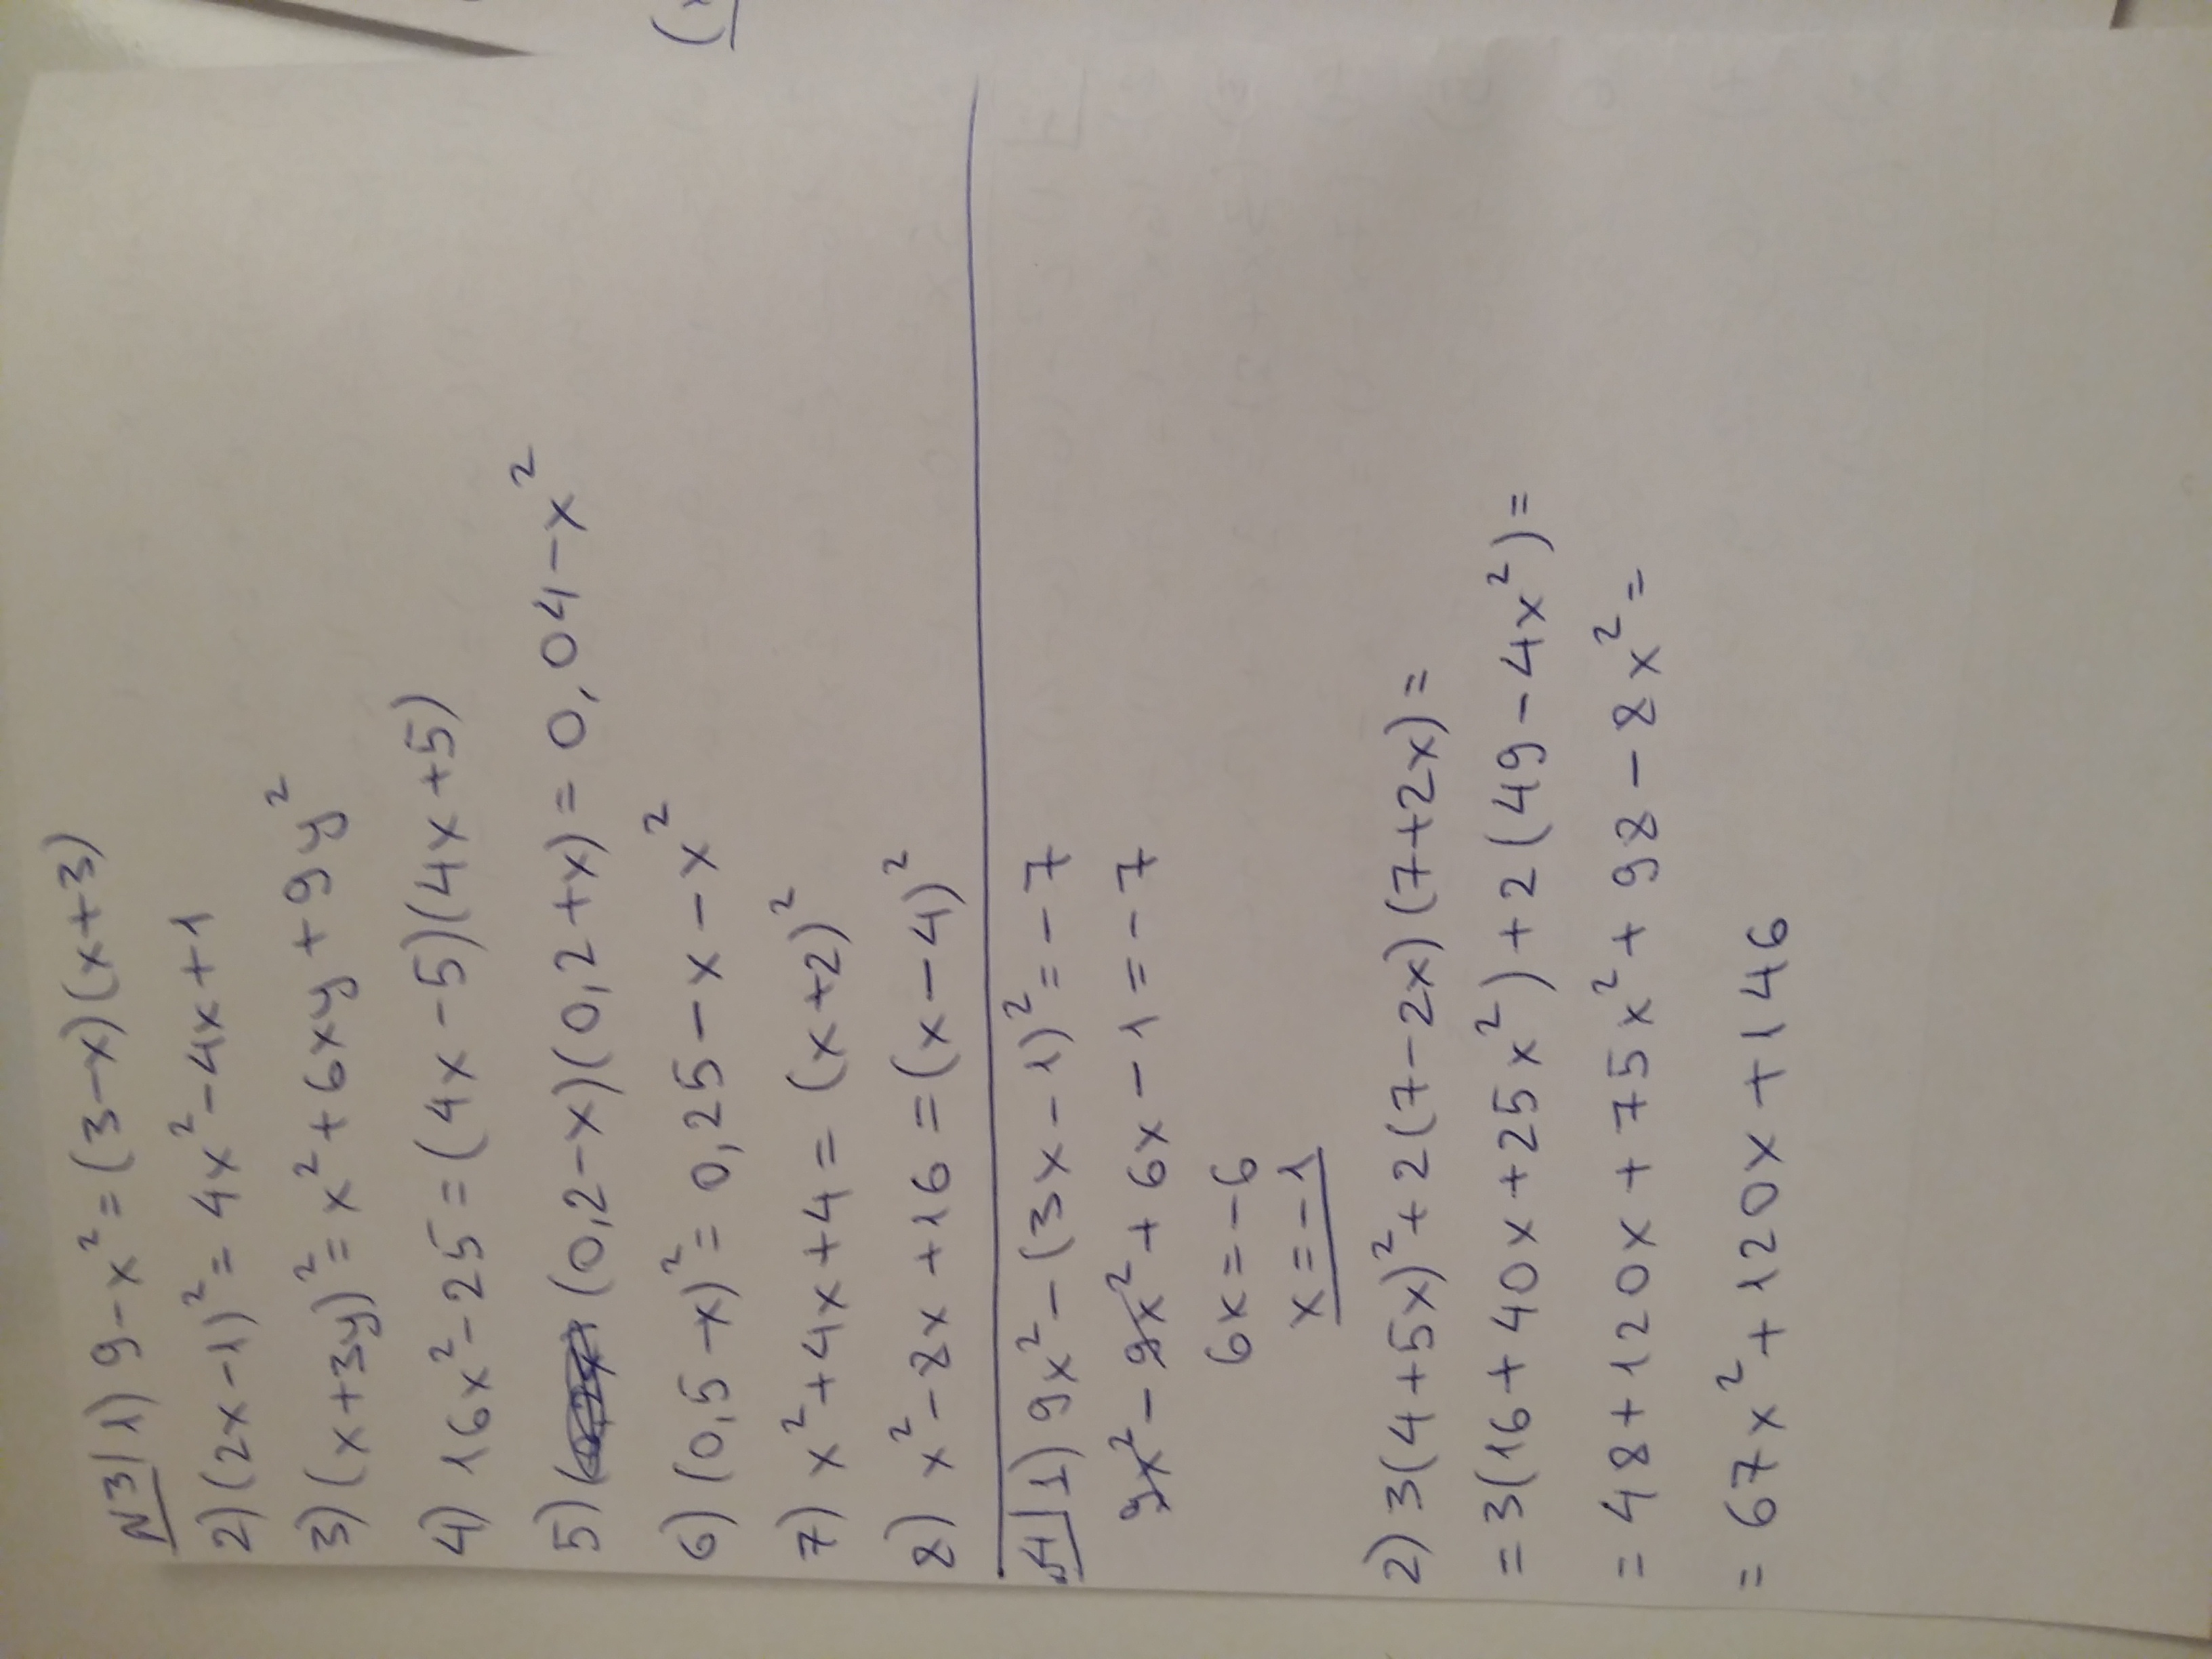 N3 1) 9-x²=(3-x)(x+3)
2) (2x-1)²=4x²-4x+1
3) (x+3y)²=x²+6xy+9y²
4) 16x²-25=(4x-5)(4x+5)
5) (0,2-x)(0,2+x)=0,04-x²
6) (0,5-x)²=0,25-x-x²
7) x²+4x+4=(x+2)²
8) x²-8x+16=(x-4)²
1) 9x²-(3x-1)²=-7
9x²-9x²+6x-1=-7
6x=-6
x=-1
2) 3(4+5x)²+2(7-2x)(7+2x)=
=3(16+40x+25x²)+2(49-4x²)=
=48+120x+75x²+98-8x²=
=67x²+120x+146